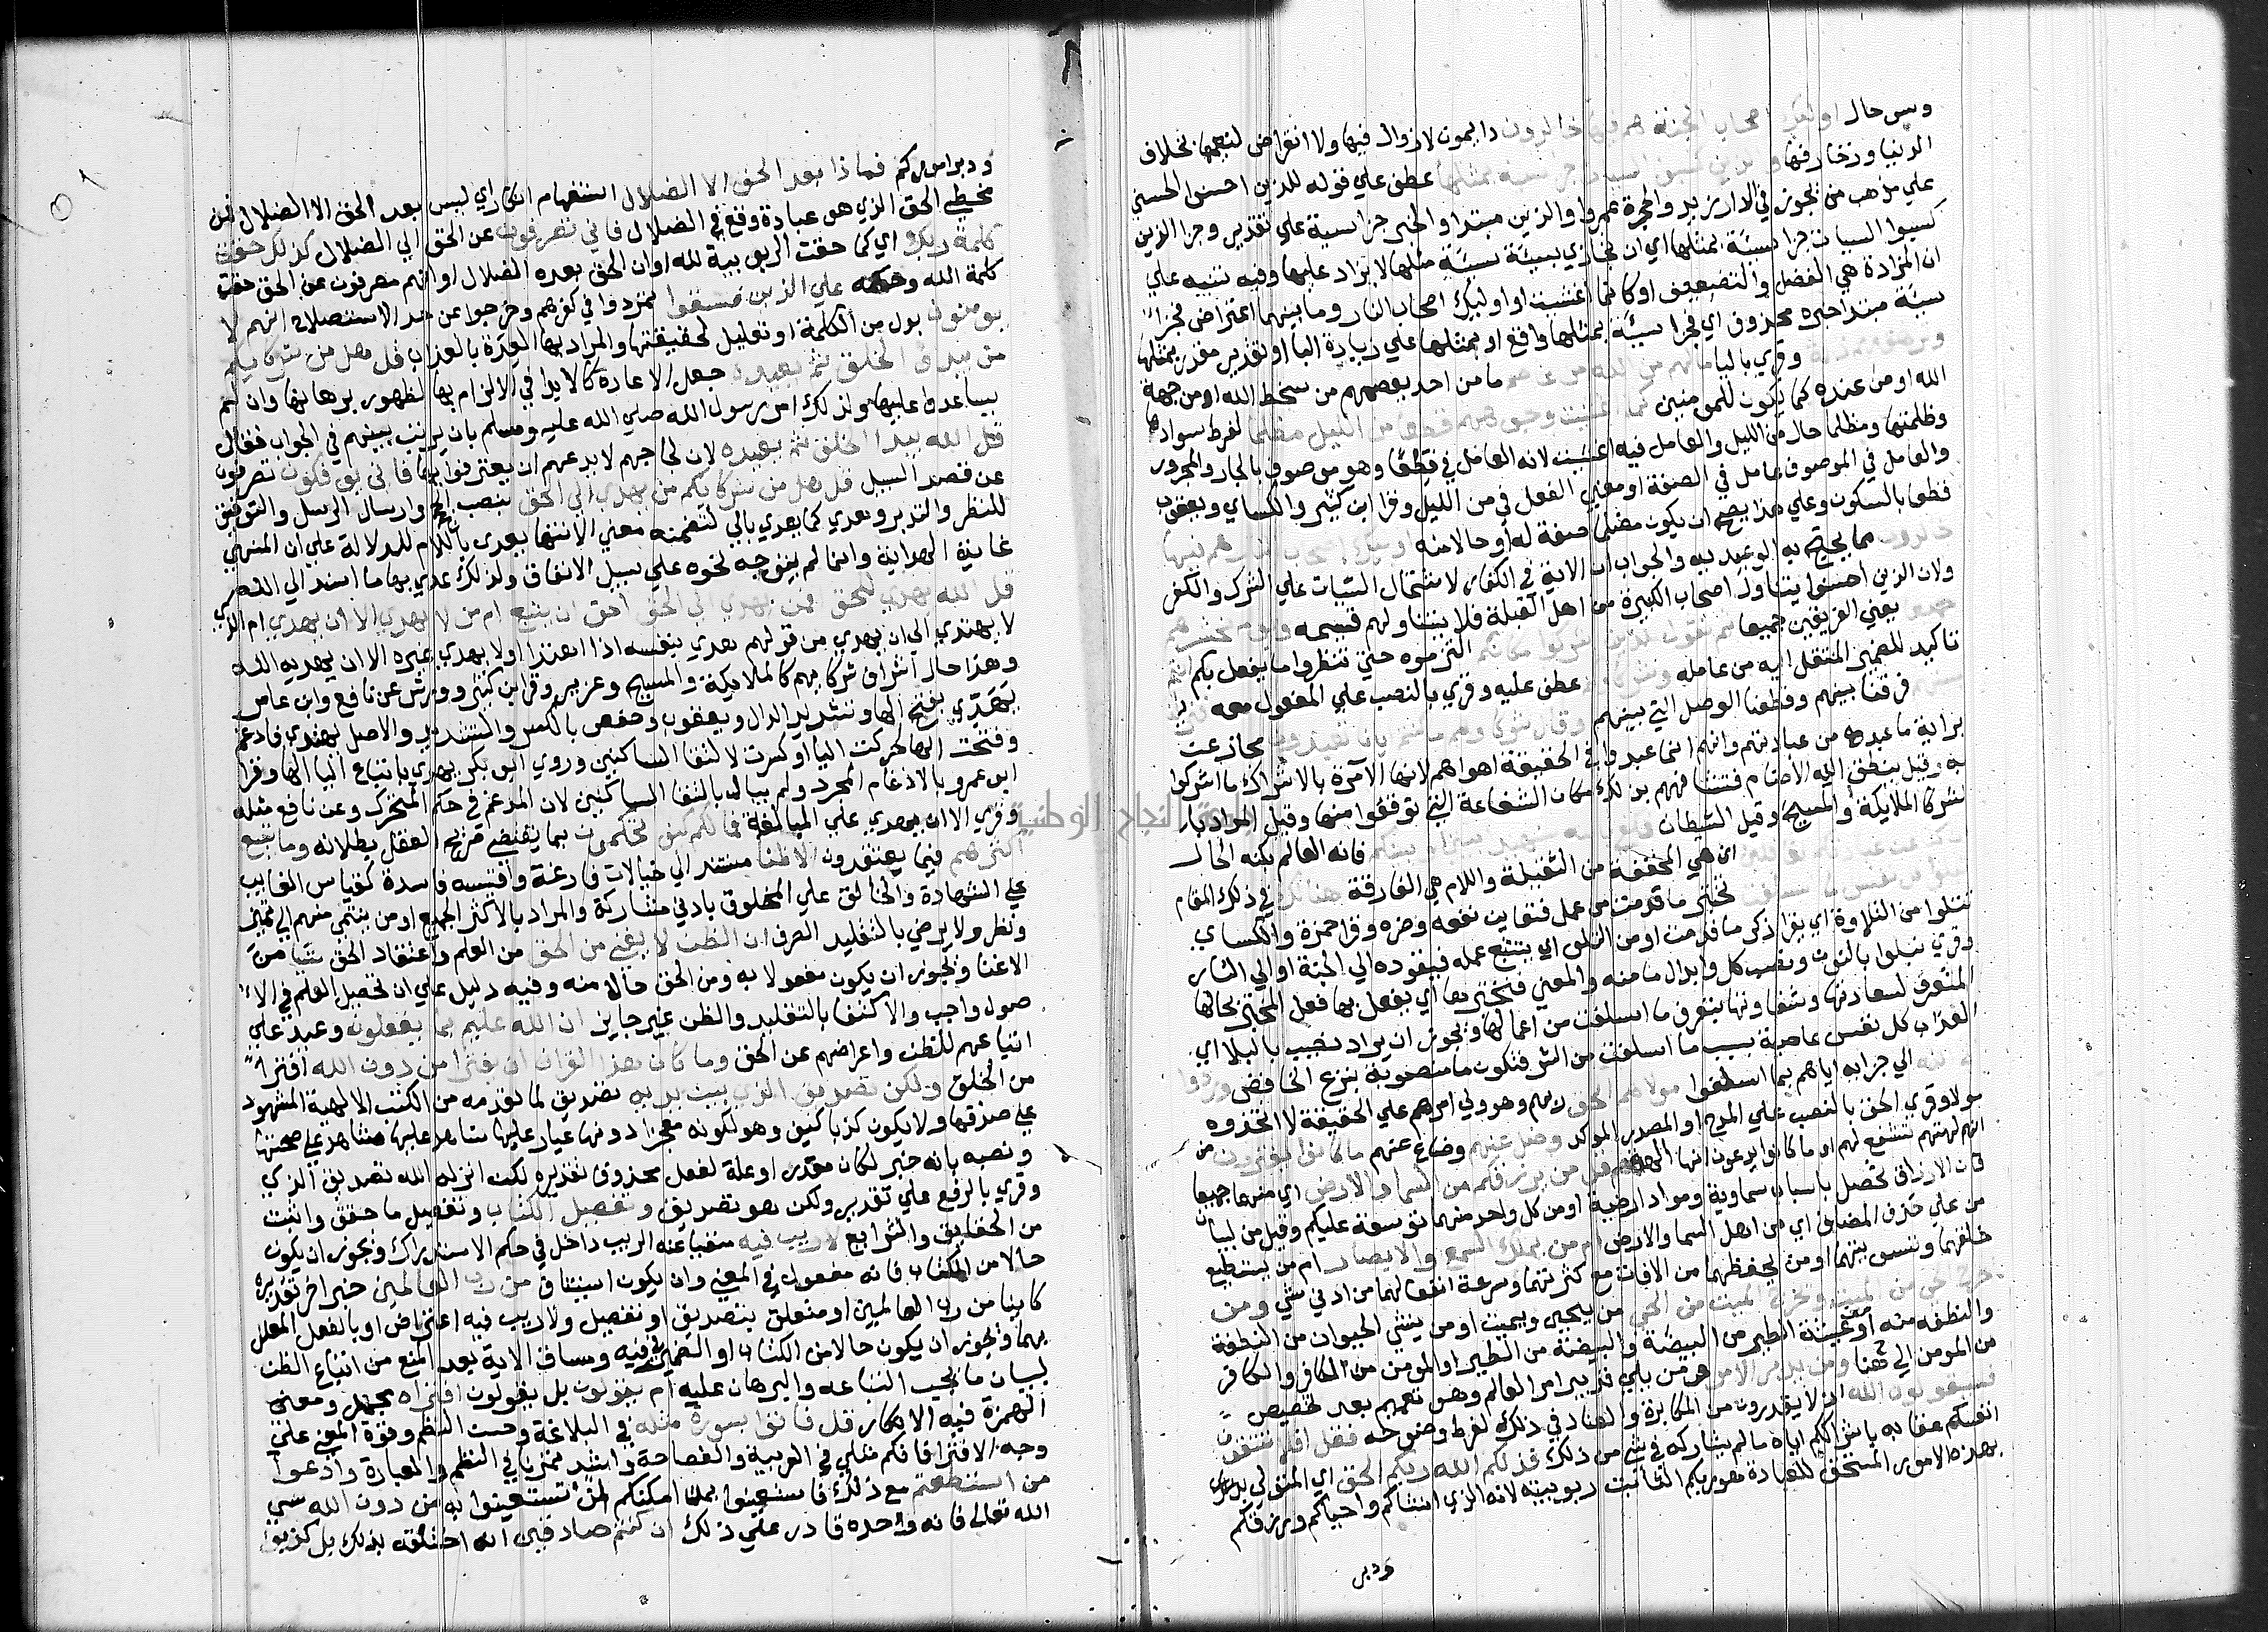 وسو حال اولئك اصحاب الجنة هم فيها خالدون دايمون لا زوال فيها ولا انقراض لنعيمها بخلاف
الدنيا وزخارفها والذين كسبوا السيات جزا سيئة بمثلها عطف علي قوله للذين احسنوا الحسني
علي مذهب من يجوز في الدار زيد والحجرة عمروا والذين مبتدا والخبر جزا سيئة علي تقدير وجزا الذين
كسبوا السيات جزا سيئة بمثلها اي ان تجازي سيئة بسيئة مثلها لا يزاد عليها وفيه تنبيه علي
ان الزيادة هي الفضل والتضعيف او كانما اغشيت او اوليك اصحاب النار وما بينهما اعتراض فجزا
سيئة مبتدا خبره محذوف اي فجزا سيئة بمثلها واقع او بمثلها علي زيادة البا او تقدير مقدر بمثلها
وترهقهم ذلة وقري باليا مالهم من الله من عاصم ما من احد يعصمهم من سخط الله او من جهة
الله او من عنده كما يكون للمومنين كانما اغشيت وجوههم قطعا من الليل مظلما لفرط سوادها
وظلمتها ومظلما حال من الليل والعامل فيه اغشيت لانه العامل في قطعا وهو موصوف بالجار والمجرور
والعامل في الموصوف عامل في الصفة او معني الفعل في من الليل وقرا ابن كثير والكساي ويعقوب
قطعا بالسكون وعلي هذا يصح ان يكون مظلما صفة له او حالا منه اوليك اصحاب النار هم فيها
خالدون مما يحتج به الوعيدية والجواب ان الاية في الكفار لاشتمال السيات علي الشرك والكفر
ولان الذين احسنوا يتناول اصحاب الكبيرة من اهل القبلة فلا يتناولهم قسيمه ويوم نحشرهم
جميعا يعني الفريقين جميعا ثم نقول للذين اشركوا مكانكم الزموه حتي تنظروا ما يفعل بكم انتم
تاكيد للضمير المنتقل اليه من عامله وشركاوكم عطف عليه وقري بالنصب علي المفعول معه فزيلنا
بينهم فرقنا بينهم وقطعنا الوصل التي بينهم وقال شركاوهم ما كنتم ايانا تعبدون مجاز عن
براية ما عبدوه من عبادتهم وانهم انما عبدوا في الحقيقة اهواهم لانها الآمرة بالاشراك ما اشركوا
به وقيل ينطق الله الاصنام فتشافههم بذلك مكان الشفاعة التي توقعوا منها وقيل المراد بال
شركا الملايكة والمسيح وقيل الشيطان فكفي بالله شهيدا بيننا وبينكم فانه العالم بكنه الحال
ان كنا عن عبادتكم لغافلين ان هي المخففة من الثقيلة واللام هي الفارقة هنالك في ذلك المقام
تبلوا كل نفس ما اسلفت تختبر ما قدمت من عمل فتعاين نفعه وضره وقرا حمزة والكساي
تتلوا من التلاوة اي يقرا ذكر ما قدمت او من التلو اي يتبع عمله فيقوده الي الجنة او الي النار
وقري نبلوا بالنون ونصب كل وابدال ما منه والمعني نختبرها اي يفعل بها فعل المختبر بحالها
المتعرف لسعادتها وشقاوتها بتعرف ما اسلفت من اعمالها ويجوز ان يراد نصيب بالبلا اي
العذاب كل نفس عاصية بسبب ما اسلفت من الشر فتكون ما منصوبة بنزع الخافض وردوا
الي الله الي جزايه اياهم بما اسلفوا مولاهم الحق ربهم وهو ولي امرهم علي الحقيقة لا ما اتخذوه
مولا وقري الحق بالنصب علي المدح او المصدر الموكد وضل عنهم وضاع عنهم ما كانوا يفترون من
انهم الهتهم تشفع لهم او ما كانوا يدعون انها الهة قل من يرزقكم من السما والارض اي منهما جميعا
فان الارزاق تحصل باسباب سماوية ومواد ارضية او من كل واحد منهما توسعة عليكم وقيل من لبيان
من علي حذف المضاف اي من اهل السما والارض ام من يملك السمع والابصار ام من يستطيع
خلقهما وتسويتهما او من يحفظهما من الافات مع كثرتها وسرعة انفعالهما من ادني شي ومن
يخرج الحي من الميت ويخرج الميت من الحي من يحيي ويميت او من ينشي الحيوان من النطفة
والنطفه منه او معني الطير من البيضة والبيضة من الطير او المومن من الكافر والكافر
من المومن الي هنا ومن يدبر الامر ومن يلي تدبير امر العالم وهو تعميم بعد تخصيص
فسيقولون الله اذ لا يقدرون من المكابرة والعناد في ذلك لفرط وضوحه فقل افلا تتقون
انفسكم عقابه باشراككم اياه ما لم يشاركه في شي من ذلك فذلكم الله ربكم الحق اي المتولي
بهذه الامور المستحق للعبادة هو ربكم الثابت ربوبيته لانه الذي انشاكم واحياكم ورزقكم
ودبر
ودبر اموركم فماذا بعد الحق الا الضلال استفهام انكار اي ليس بعد الحق الا الضلال فمن
تخطي الحق الذي هو عبادة وقع في الضلال فاني تصرفون عن الحق الي الضلال كذلك حقت
كلمة ربك اي كما حقت الربوبية لله او ان الحق بعده الضلال او انهم مصرفون عن الحق حقت
كلمة الله وحكمه علي الذين فسقوا تمردوا في كفرهم وخرجوا عن حد الاستصلاح انهم لا
يومنون بدل من الكلمة او تعليل لحقيقتها والمراد بها العدة بالعذاب قل هل من شركايكم
من يبدؤ الخلق ثم يعيده جعل الاعادة كالابدا في الالزام بها لظهور برهانها وان لم
يساعدوا عليها ولذلك امر رسول الله صلي الله عليه وسلم بان ينوب عنهم في الجواب فقال
قل الله يبدا الخلق ثم يعيده لان لجاجهم لا يدعهم ان يعترفوا بها فاني توفكون تصرفون
عن قصد السبيل قل هل من شركايكم من يهدي الي الحق بنصب الحجج وارسال الرسل والتوفيق
للنظر والتدبر وهدي كما يعدي بالي لتضمنه معني الانتها يعدي باللام للدلالة علي ان المنتهي
غاية الهداية وانما لم يتوجه نحوه علي سبيل الاتفاق ولذلك عدي بها ما اسند الي الله
قل الله يهدي للحق افمن يهدي الي الحق احق ان يتبع ام من لا يهدي الا ان يهدي ام الذي
لا يهتدي الي ان يهدي من قولهم هدي بنفسه اذا اهتدا او لا يهدي غيره الا ان يهديه الله
وهذا حال اشراف شركايهم كالملايكة والمسيح وعزير وقرا ابن كثير وورش عن نافع وابن عامر
يَهَدِّي بفتح الها وتشديد الدال ويعقوب وحفص بالكسر والتشديد والاصل يهتدي فادغم
وفتحت الها لحركت اليا او كسرت لالتقا الساكنين وروي ابو بكر يهدي باتباع اليا الها وقرا
ابو عمرو بالادغام المجرد ولم يبال بالتقا الساكنين لان المدغم في حكم المتحرك وعن نافع مثله
وقري الا ان يهدي علي المبالغة فمالكم كيف تحكمون بما يقتضي صريح العقل بطلانه وما يتبع
اكثرهم فيما يعتقدون الا ظنا مستندا الي خيالات فارغة واقيسه فاسدة كقياس الغايب
علي الشهادة والخالق علي المخلوق بادني مشاركة والمراد بالاكثر الجميع او من ينتمي منهم الي تمييز
ونظر ولا يرضي بالتقليد الصرف ان الظن لا يغني من الحق من العلم واعتقاد الحق شيا من
الاغنا ويجوز ان يكون مفعولا به ومن الحق حالا منه وفيه دليل علي ان تحصيل العلم في الا
صول واجب والاكتفا بالتقليد والظن غير جايز ان الله عليم بما يفعلون وعيد علي
اتباعهم للظن واعراضهم عن الحق وما كان هذا القران ان يفترا من دون الله افترا
من الخلق ولكن تصديق الذي بين يديه تصديق لما تقدمه من الكتب الالهية المشهود
علي صدقها ولا يكون كذبا كيف وهو لكونه معجزا دونها عيار عليها شاهد علي صحتها
ونصبه بانه خبر لكان مقدر او علة لفعل محذوف تقديره لكن انزله الله تصديق الذي
وقري بالرفع علي تقدير ولكن هو تصديق وتفصيل الكتاب وتفصيل ما حقق واثبت
من الحقايق والشرايع لا ريب فيه منفيا عنه الريب داخل في حكم الاستدراك ويجوز ان يكون
حالا من الكتاب فانه مفعول في المعني وان يكون استينافا من رب العالمين خبر اخر تقديره
كاينا من رب العالمين او متعلق بتصديق او تفصيل ولا ريب فيه اعتراض او بالفعل المعلل
بهما ويجوز ان يكون حالا من الكتاب او الضمير في فيه ومساق الاية بعد المنع من اتباع الظن
لبيان ما يجب اتباعه والبرهان عليه ام يقولون بل يقولون افتراه محمد ومعني
الهمزة فيه الانكار قل فاتوا بسورة مثله في البلاغة وحسن النظم وقوة المعني علي
وجه الافترا فانكم مثلي في العربية والفصاحة واشد تمرنا في النظم والعبارة وادعوا
من استطعتم مع ذلك فاستعينوا بمن امكنكم ان تستعينوا به من دون الله سوي
الله تعالي فانه وحده قادر علي ذلك ان كنتم صادقين انه اختلقه بذلك بل كذبوا